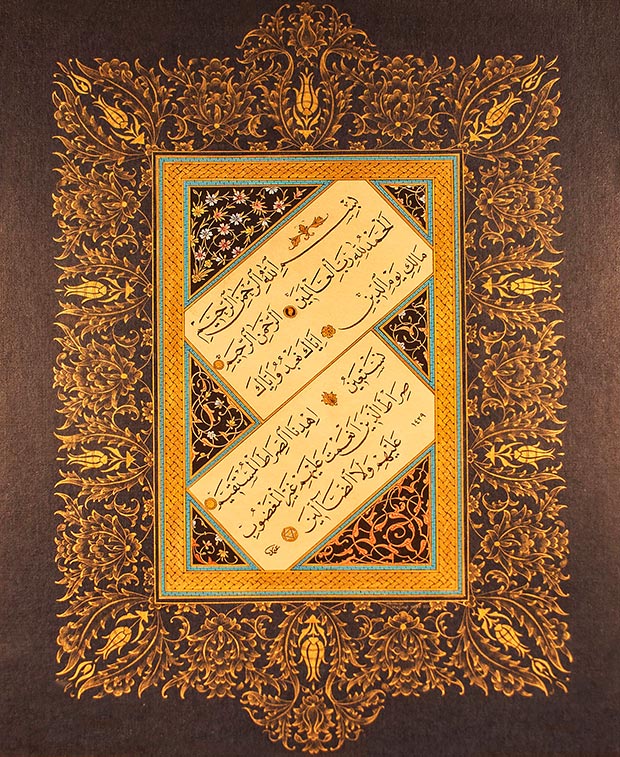 بِسْمِ اللهِ الرَّحْمٰنِ الرَّحِيمِ
اَلْحَمْدُ لِلهِ رَبِّ الْعَالَمِينَ الرَّحْمٰنِ الرَّحِيمِ
مَالِكِ يَوْمِ الدِّينِ إِيَّاكَ نَعْبُدُ وَإِيَّاكَ
نَسْتَعِينُ اِهْدِنَا الصِّرَاطَ الْمُسْتَقِيمَ
صِرَاطَ الَّذِينَ أَنْعَمْتَ عَلَيْهِمْ غَيْرِ الْمَغْضُوبِ
عَلَيْهِمْ وَلَا الضَّالِّينَ
١٤٢٩